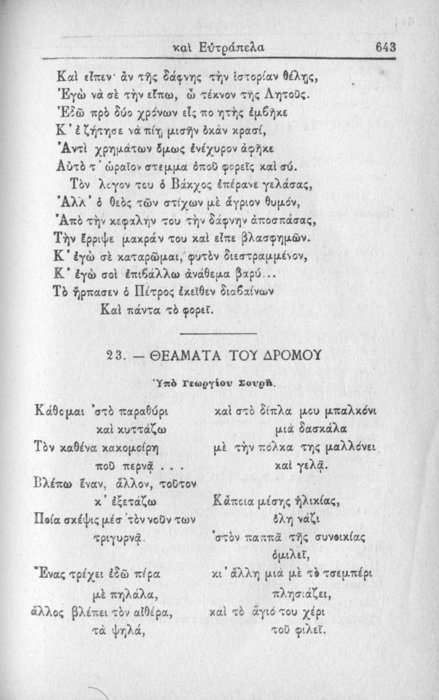 καὶ Εὐτράπελα 643
Καὶ εἶπεν· ἂν τῆς δάφνης τὴν ἱστορίαν θέλῃς,
Ἐγὼ νὰ σὲ τὴν εἴπω, ὦ τέκνον τῆς Λητοῦς.
Ἐδῶ πρὸ δύο χρόνων εἷς πο ητὴς ἐμβῆκε
Κ' ἐζήτησε νὰ πίῃ μισὴν ὀκὰν κρασί,
Ἀντὶ χρημάτων ὅμως ἐνέχυρον ἀφῆκε
Αὐτὸ τ' ὡραῖον στεμμα ὁποῦ φορεῖς καὶ σύ.
Τὸν λογον του ὁ Βάκχος ἐπέρανε γελάσας,
Ἀλλ' ὁ θεὸς τῶν στίχων μὲ ἄγριον θυμόν,
Ἀπὸ τὴν κεφαλήν του τὴν δάφνην ἀποσπάσας,
Τὴν ἔρριψε μακράν του καὶ εἶπε βλασφημῶν.
Κ' ἐγὼ σὲ καταρῶμαι, φυτὸν διεστραμμένον,
Κ' ἐγὼ σοὶ ἐπιβάλλω ἀνάθεμα βαρύ...
Τὸ ἥρπασεν ὁ Πέτρος ἐκεῖθεν διαβαίνων
Καὶ πάντα τὸ φορεῖ.
23. — ΘΕΑΜΑΤΑ ΤΟΥ ΔΡΟΜΟΥ
Ὑπὸ Γεωργίου Σουρῆ.
Κάθομαι 'στὸ παραθύρι
καὶ κυττάζω
Τὸν καθένα κακομοίρη
ποῦ περνᾷ . . .
Βλέπω ἕναν, ἄλλον, τοῦτον
κ' ἐξετάζω
Ποία σκέψις μέσ' τὸν νοῦν των
τριγυρνᾷ.
Ἕνας τρέχει ἐδῶ πέρα
μὲ πηλάλα,
ἄλλος βλέπει τὸν αἰθέρα,
τὰ ψηλά,
καὶ στὸ δίπλα μου μπαλκόνι
μιὰ δασκάλα
μὲ τὴν πόλκα της μαλλόνει
καὶ γελᾷ.
Κάποια μέσης ἡλικίας,
ὅλη νάζι
'στὸν παππᾶ τῆς συνοικίας
ὁμιλεῖ,
κι' ἄλλη μιὰ μὲ τὸ τσεμπέρι
πλησιάζει,
καὶ τὸ ἅγιό του χέρι
τοῦ φιλεῖ.